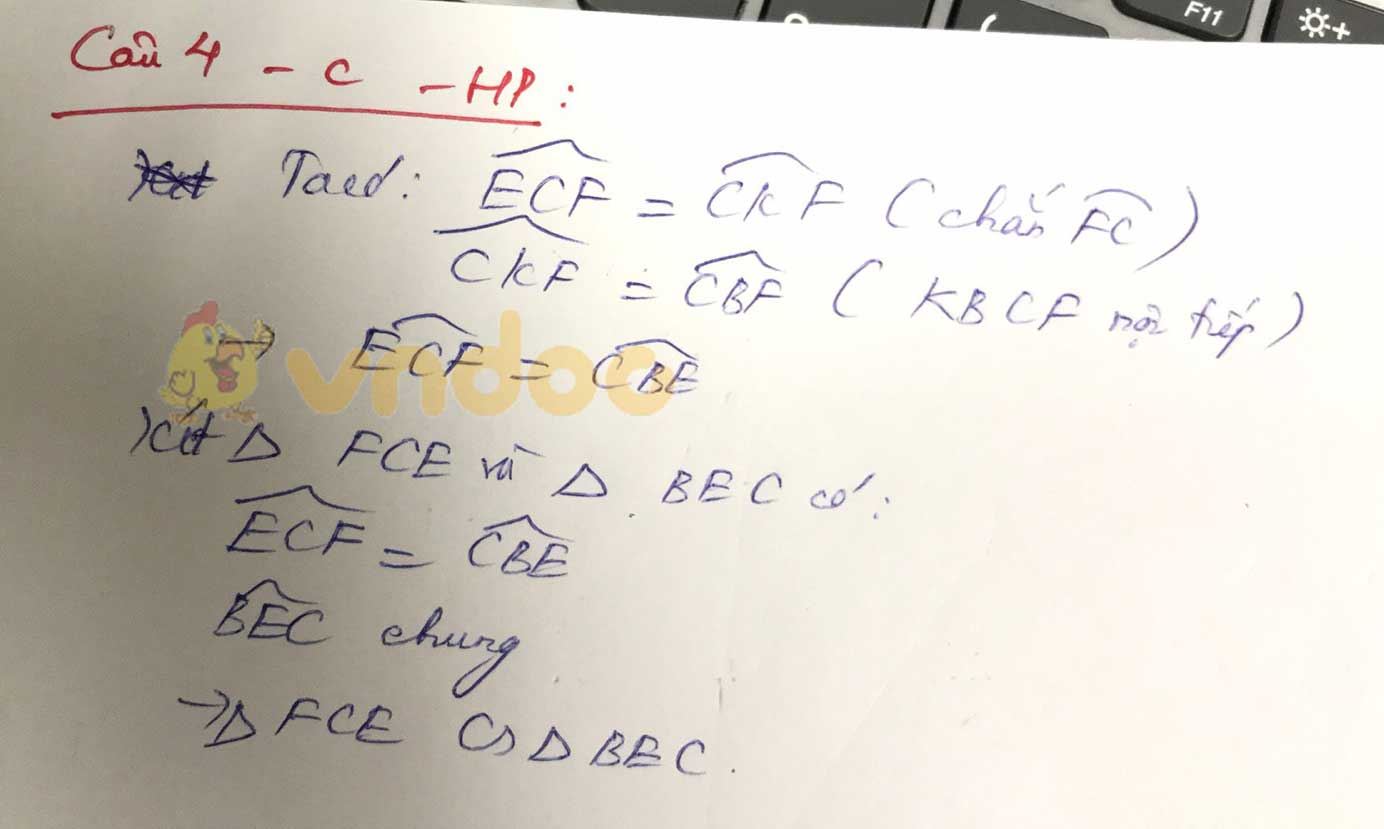 F11
Câu 4 - c - HP:
Ta có: \widehat{ECF} = \widehat{CKF} (chắn \overset{\frown}{FC})
\widehat{CKF} = \widehat{CBF} (KBCF nội tiếp)
→ \widehat{ECF} = \widehat{CBE}
vndoc
Xét Δ FCE và Δ BEC có:
\widehat{ECF} = \widehat{CBE}
\widehat{BEC} chung
→ Δ FCE ∽ Δ BEC.